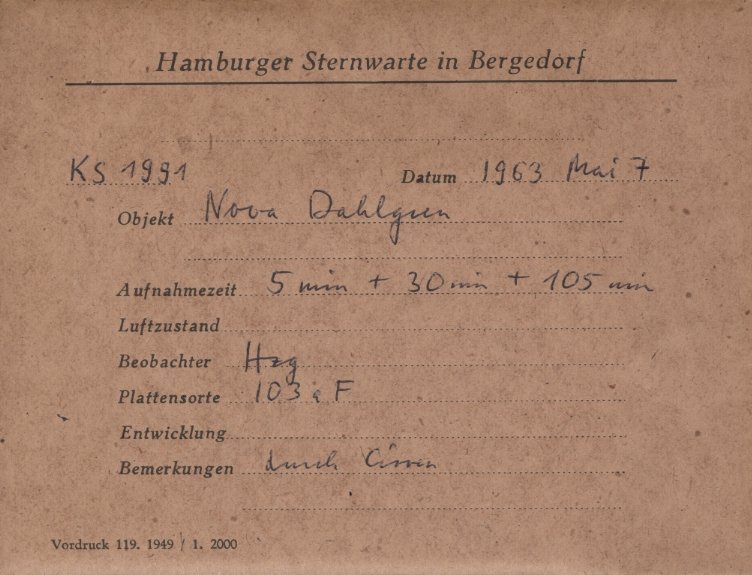 Hamburger Sternwarte in Bergedorf
KS 1991 Datum 1963 Mai 7
Objekt Nova Dahlgren
Aufnahmezeit 5 min + 30 min + 105 min
Luftzustand
Beobachter Hzg
Plattensorte 103 a F
Entwicklung
Bemerkungen durch Cirren
Vordruck 119. 1949 / 1. 2000